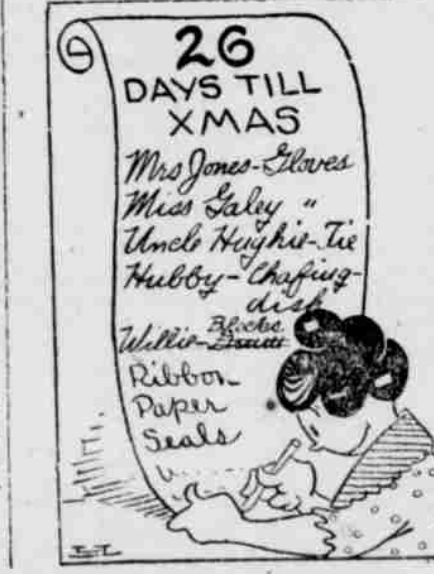 26
DAYS TILL
XMAS
Mrs Jones - Gloves
Miss Galey "
Uncle Hughie - Tie
Hubby - Chafing-
dish
Blocks
Willie -
Ribbon
Paper
Seals